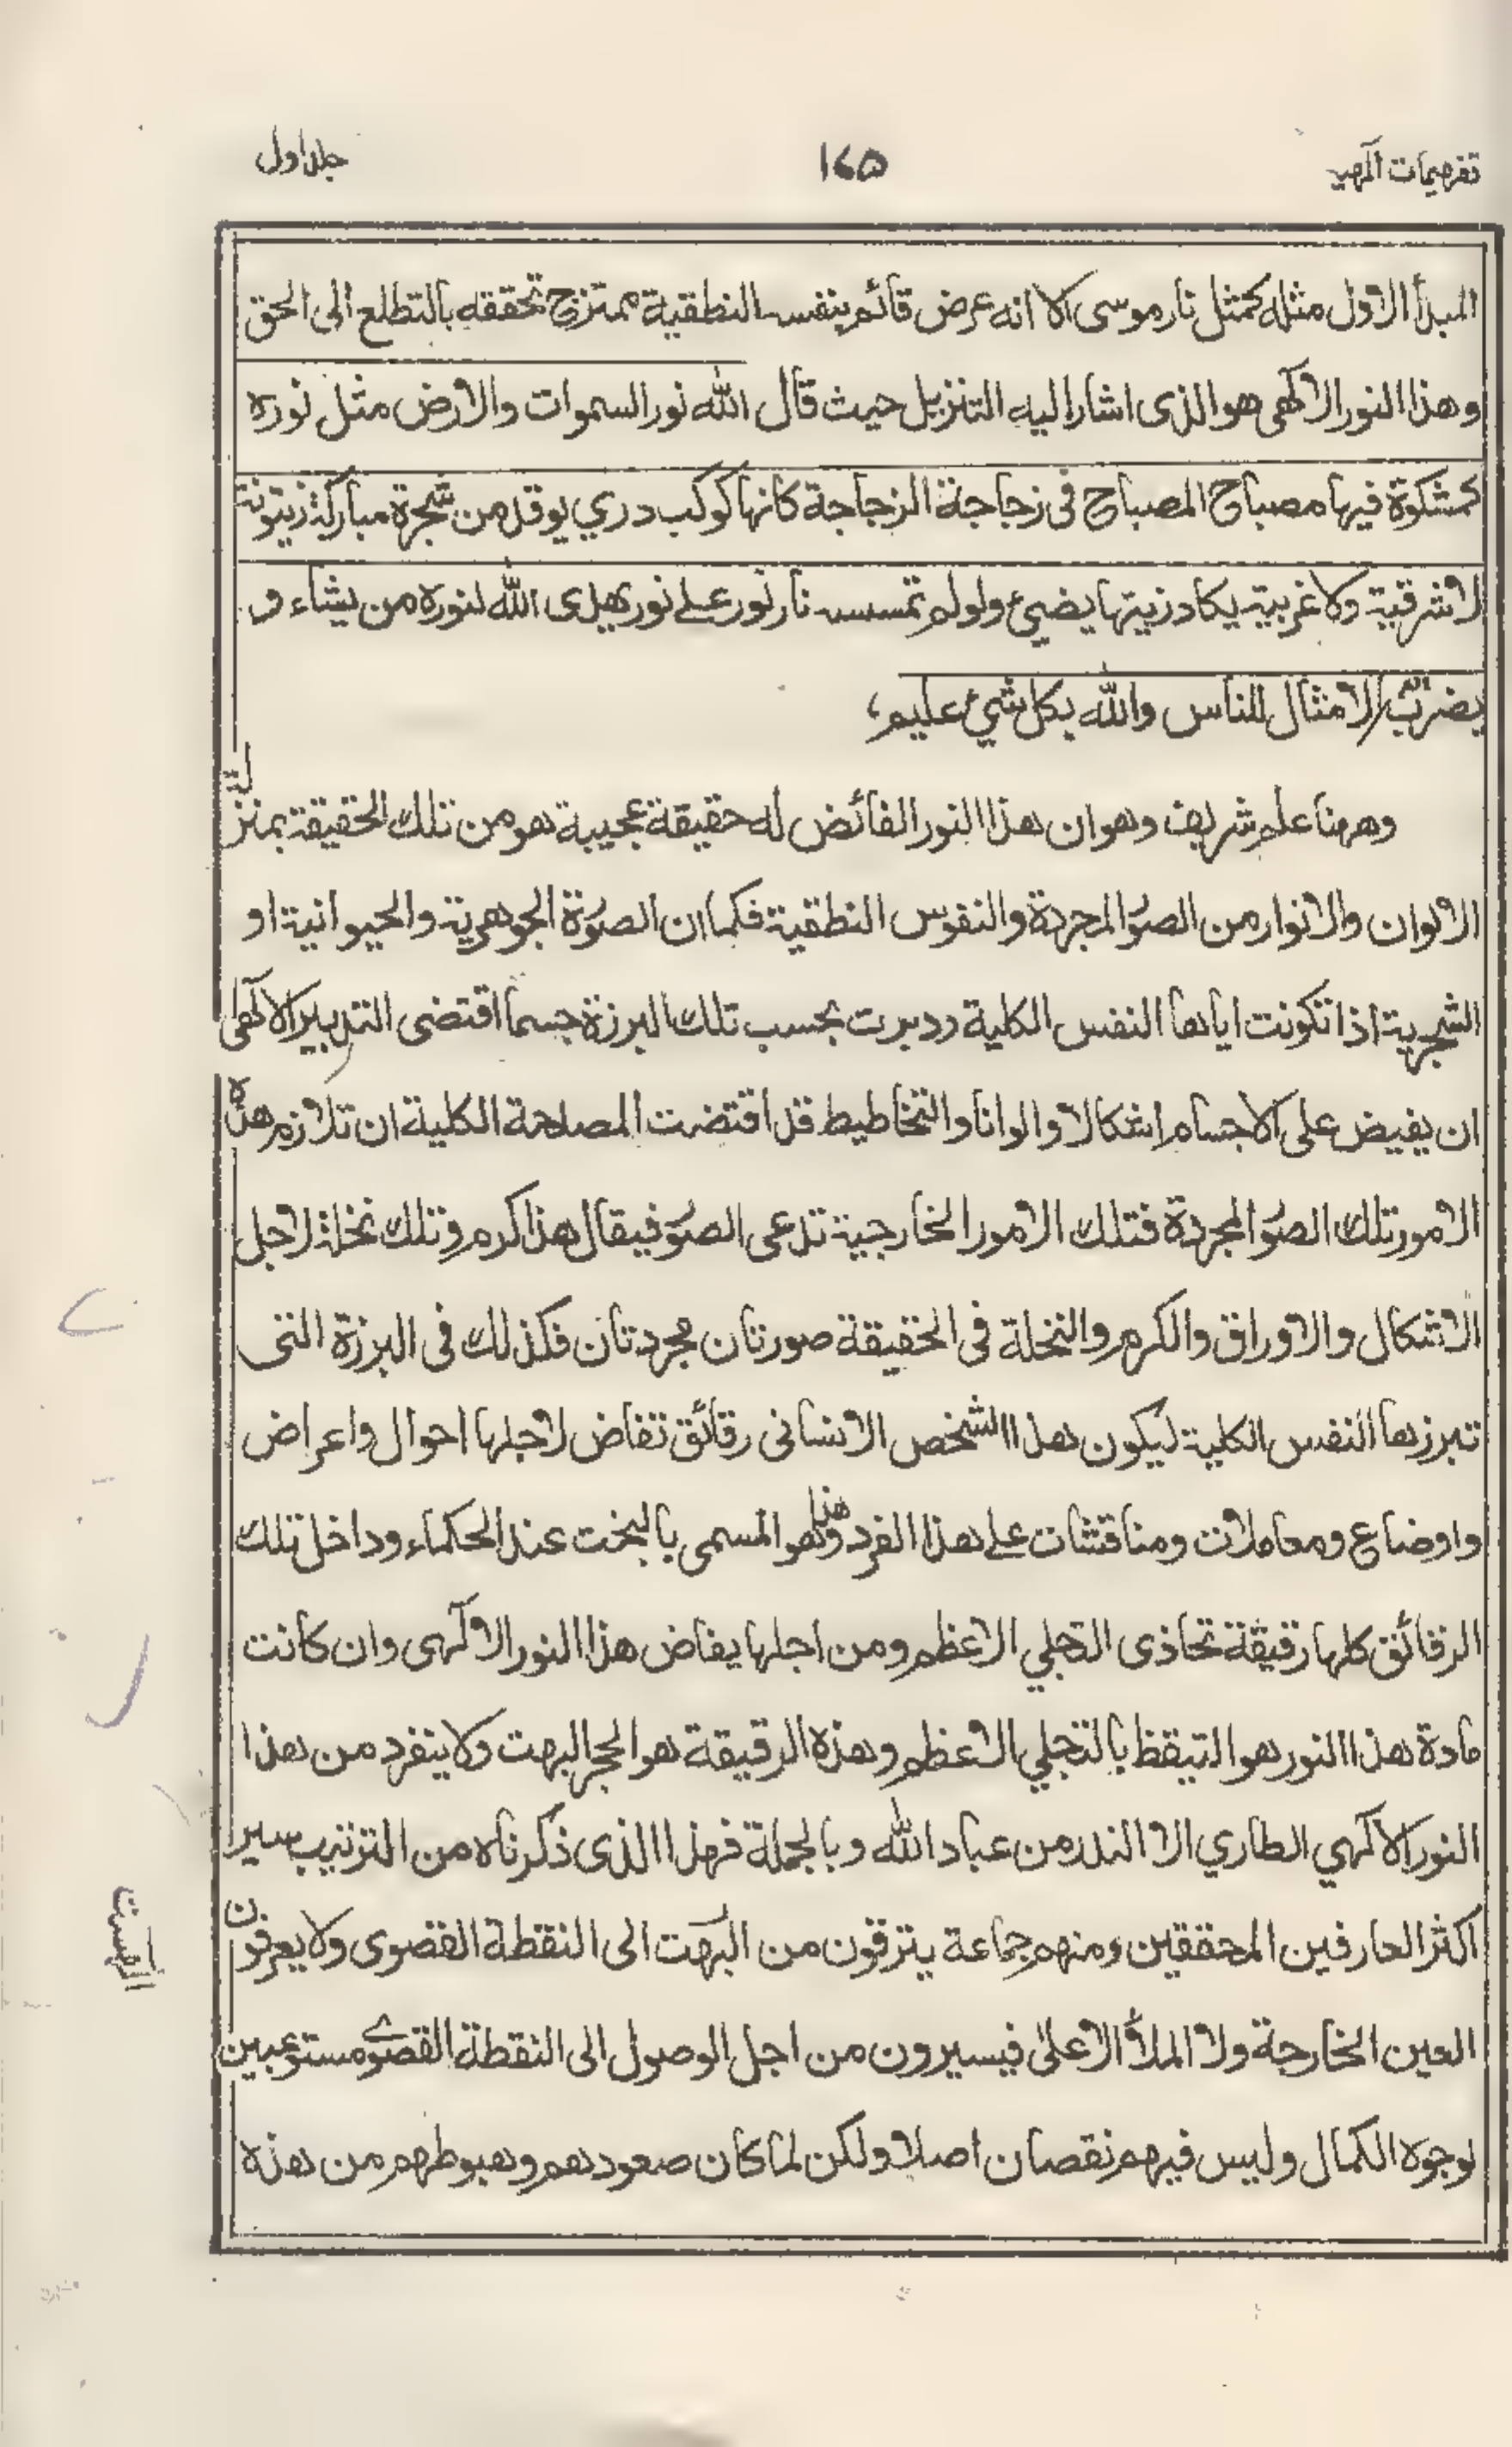 تفہیمات الٰہیہ
۱۶۵
جلد اول
المبدأ الاول مثله كمثل نار موسى الا انه عرض قائم بنفسه النطقية ممتزج تحققه بالتطلع الى الحق
وهذا النور الالٰهى هو الذى اشار اليه التنزيل حيث قال الله نور السموات والارض مثل نوره
كمشكوة فيها مصباح المصباح فى زجاجة الزجاجة كانها كوكب دري يوقد من شجرة مباركة زيتونة
لا شرقية ولا غربية يكاد زيتها يضيئ ولو لم تمسسه نار نور على نور يهدى الله لنوره من يشاء و
يضرب الله الامثال للناس والله بكل شيئ عليم،
وههنا علم شريف وهو ان هذا النور الفائض له حقيقة عجيبة هو من تلك الحقيقة بمنزلة
الالوان والانوار من الصور المجردة والنفوس النطقية فكما ان الصورة الجوهرية والحيوانية او
الشجرية اذا تكونت اياها النفس الكلية ودبرت بحسب تلك البرزة جسما اقتضى التدبير الالٰهى
ان يفيض على الاجسام اشكالا والوانا والتخاطيط قد اقتضت المصلحة الكلية ان تلازم هذه
الامور تلك الصور المجردة فتلك الامور الخارجية تدعى الصور فيقال هذا كرم وتلك نخلة لاجل
الاشكال والاوراق والكرم والنخلة فى الحقيقة صورتان مجردتان فكذلك فى البرزة التى
تبرزها النفس الكلية ليكون هذا الشخص الانسانى رقائق تفاض لاجلها احوال واعراض
واوضاع ومعاملات ومناقشات على هذا الفرد وهذا هو المسمى بالبخت عند الحكماء وداخل تلك
الرقائق كلها رقيقة تحاذى التجلي الاعظم ومن اجلها يفاض هذا النور الالٰهى وان كانت
مادة هذا النور هو التيقظ بالتجلي الاعظم وهذه الرقيقة هو الحجر البهت ولا ينفرد من هذا
النور الالٰهي الطاري الا الندر من عباد الله وبالجملة فهذا الذى ذكرناه من الترتيب سير
اكثر العارفين المحققين ومنهم جماعة يترقون من البهت الى النقطة القصوى ولا يعرفون
العين الخارجة ولا الملأ الاعلى فيسيرون من اجل الوصول الى النقطة القصوے مستوعبين
لوجوه الكمال وليس فيهم نقصان اصلا ولكن لما كان صعودهم وهبوطهم من هذه